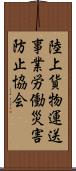 陸上貨物運送
事業労働災害
防止協会